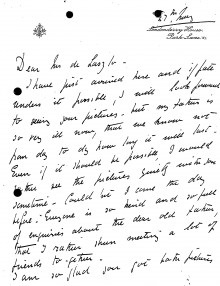 27th May
Londonderry House,
Park Lane. W.
Dear Mr de Laszlo -
I have just arrived here and if fate
renders it possible, I will look forward
to seeing your pictures - but my father is
so very ill now, that we know not
from day to day how long it will last -
Even if it should be possible, I would
rather see the pictures quietly with you
sometime - Could I come the day
before - Everyone is so kind and so full
of enquiries about the dear old father,
that I rather shun meeting a lot of
friends together.
I am so glad you got both pictures